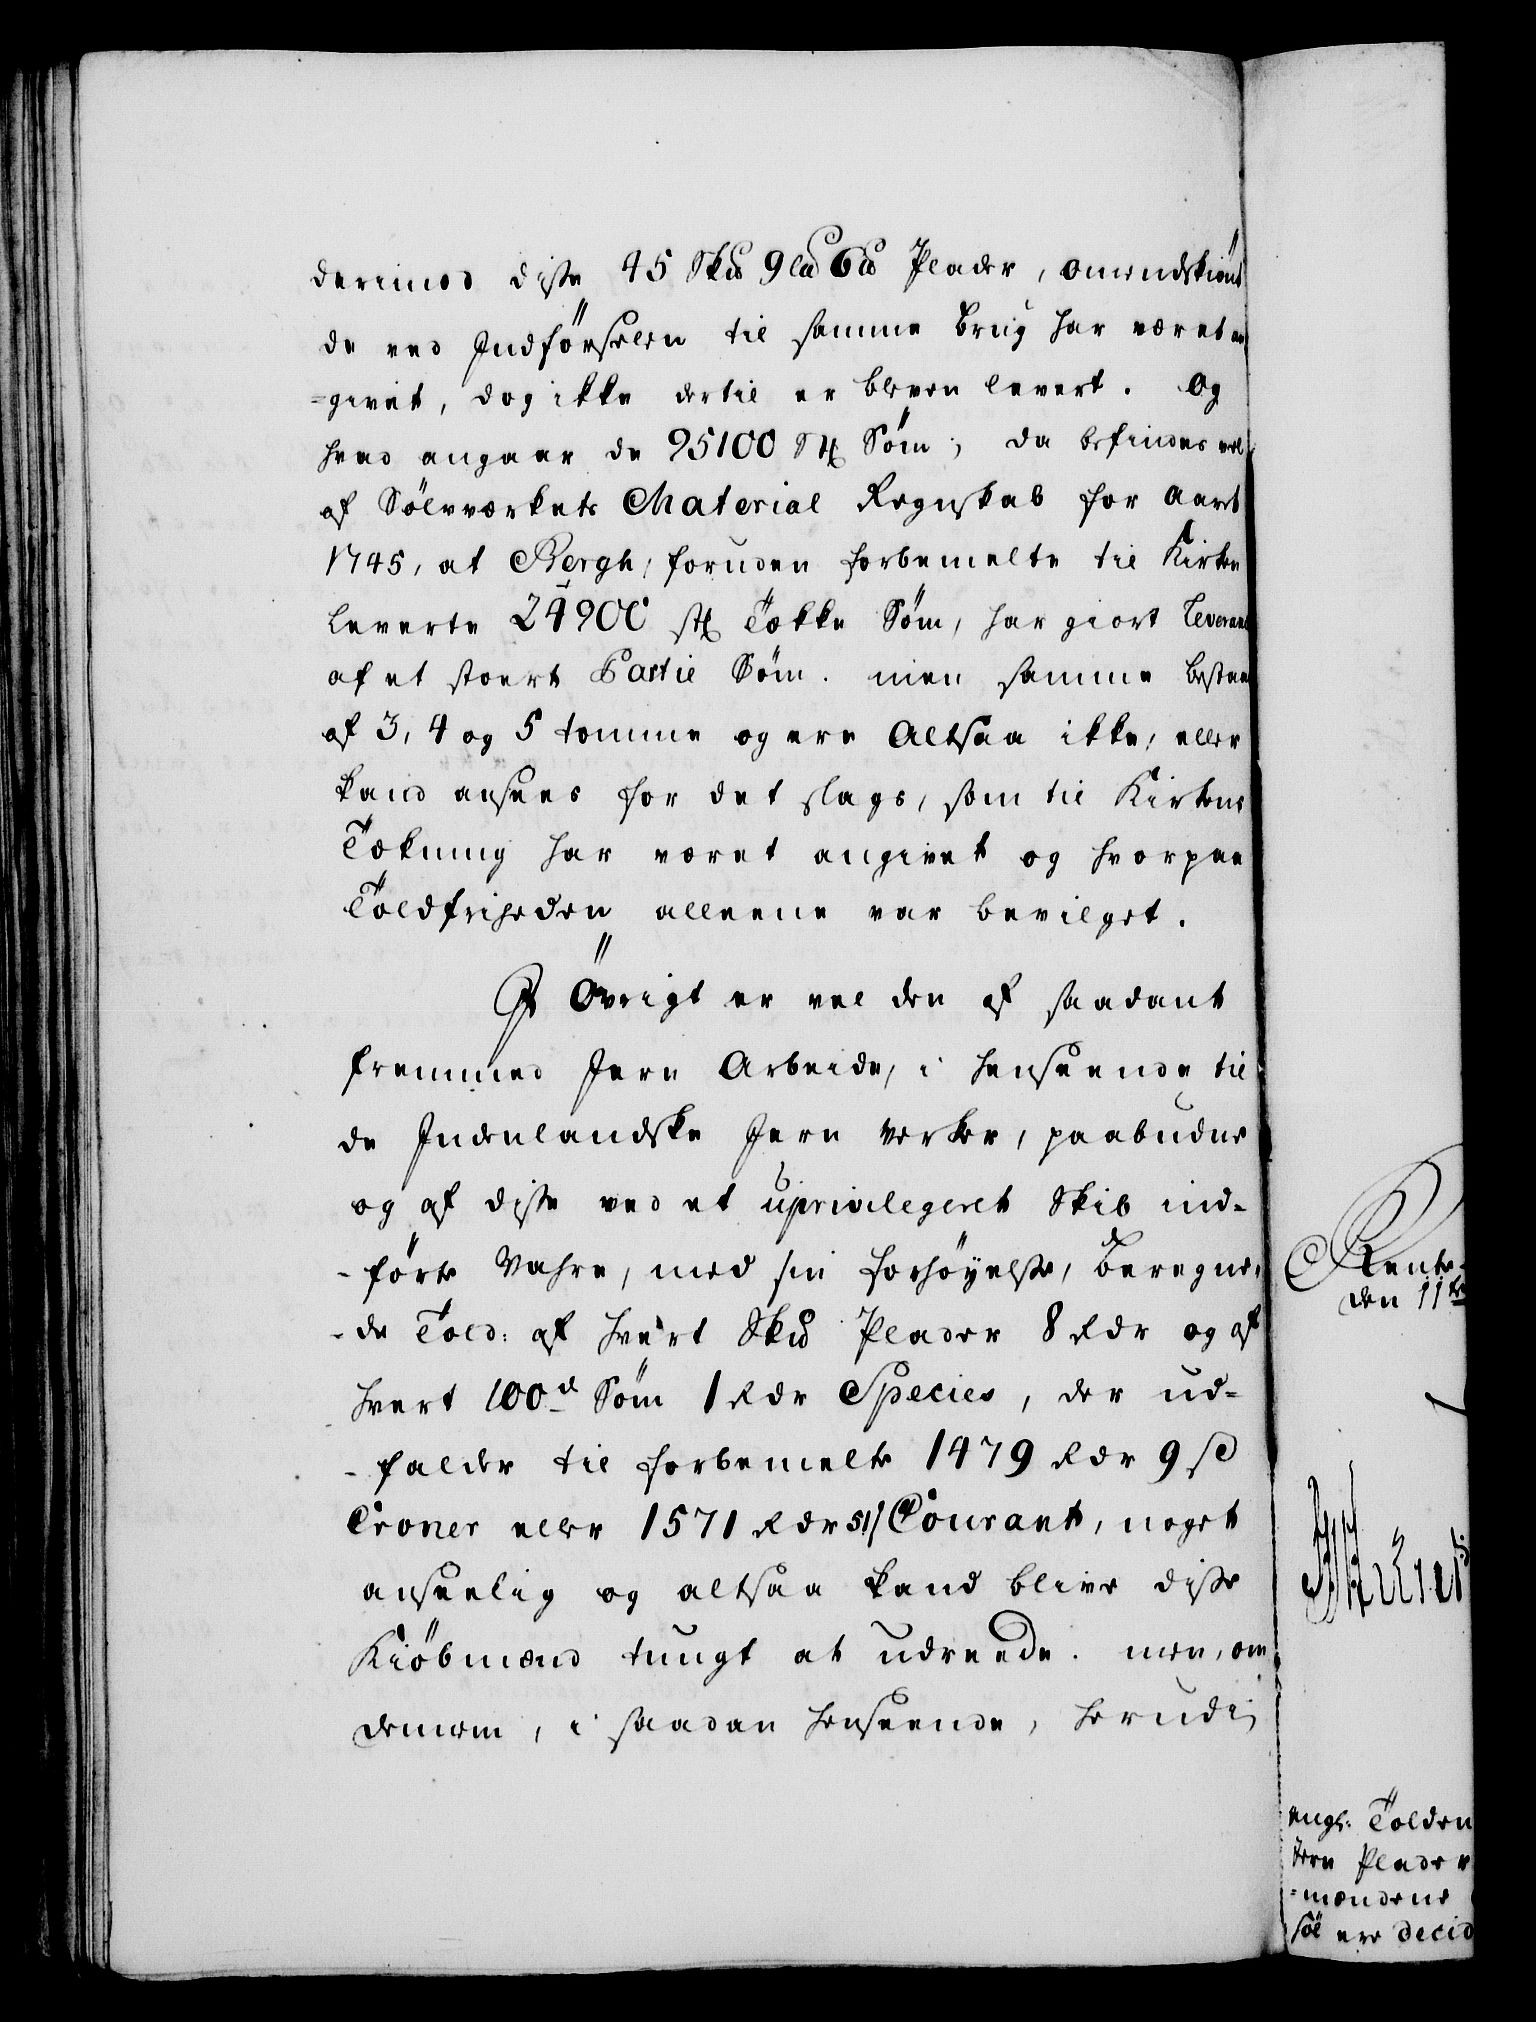 derimod disse 45 Sk℔ 9 L℔ 6 ℔ Plader, omendskiönt
de ved Indförselen til samme brug har været an
=givet, dog ikke dertil er bleven levert. Og
hvad angaar de 95100 stk Söm, da befindes vel
af Sölvværkets Material Regnskab for Aaret
1745, at Bergh, foruden forbemelte til Kirken
leverte 24900 stk Tække Söm, har giort Leverance
af et stoert Partie Söm. men samme bestaar
af 3, 4 og 5 tomme og ere Altsaa ikke, eller
kand ansees for det slags, som til Kirkens
Tækning har været angivet og hvorpaa
Toldfriheden alleene var bevilget.
I Övrigt er vel den af saadant
fremmed Jern Arbeide, i henseende til
de Indenlandske Jern Verker, paabudne
og af disse ved et uprivilegeret Skib ind-
-förte Vahre, med sin forhöyelse, beregne-
-de Told: af hvert Sk℔ Plader 8 Rdr og af
hvert 100de Söm 1 Rdr Species, der ud=
-falder til forbemelte 1479 Rdr 9 ß
Croner eller 1571 Rdr 51 ß Courant, noget
anseelig og altsaa kand blive disse
Kiöbmænd tungt at udreede. men, om
demem, i saadan henseende, herudi
Rente-
den 11te
angl. Tolden
Jern Plader
=mændene
söl ere decid